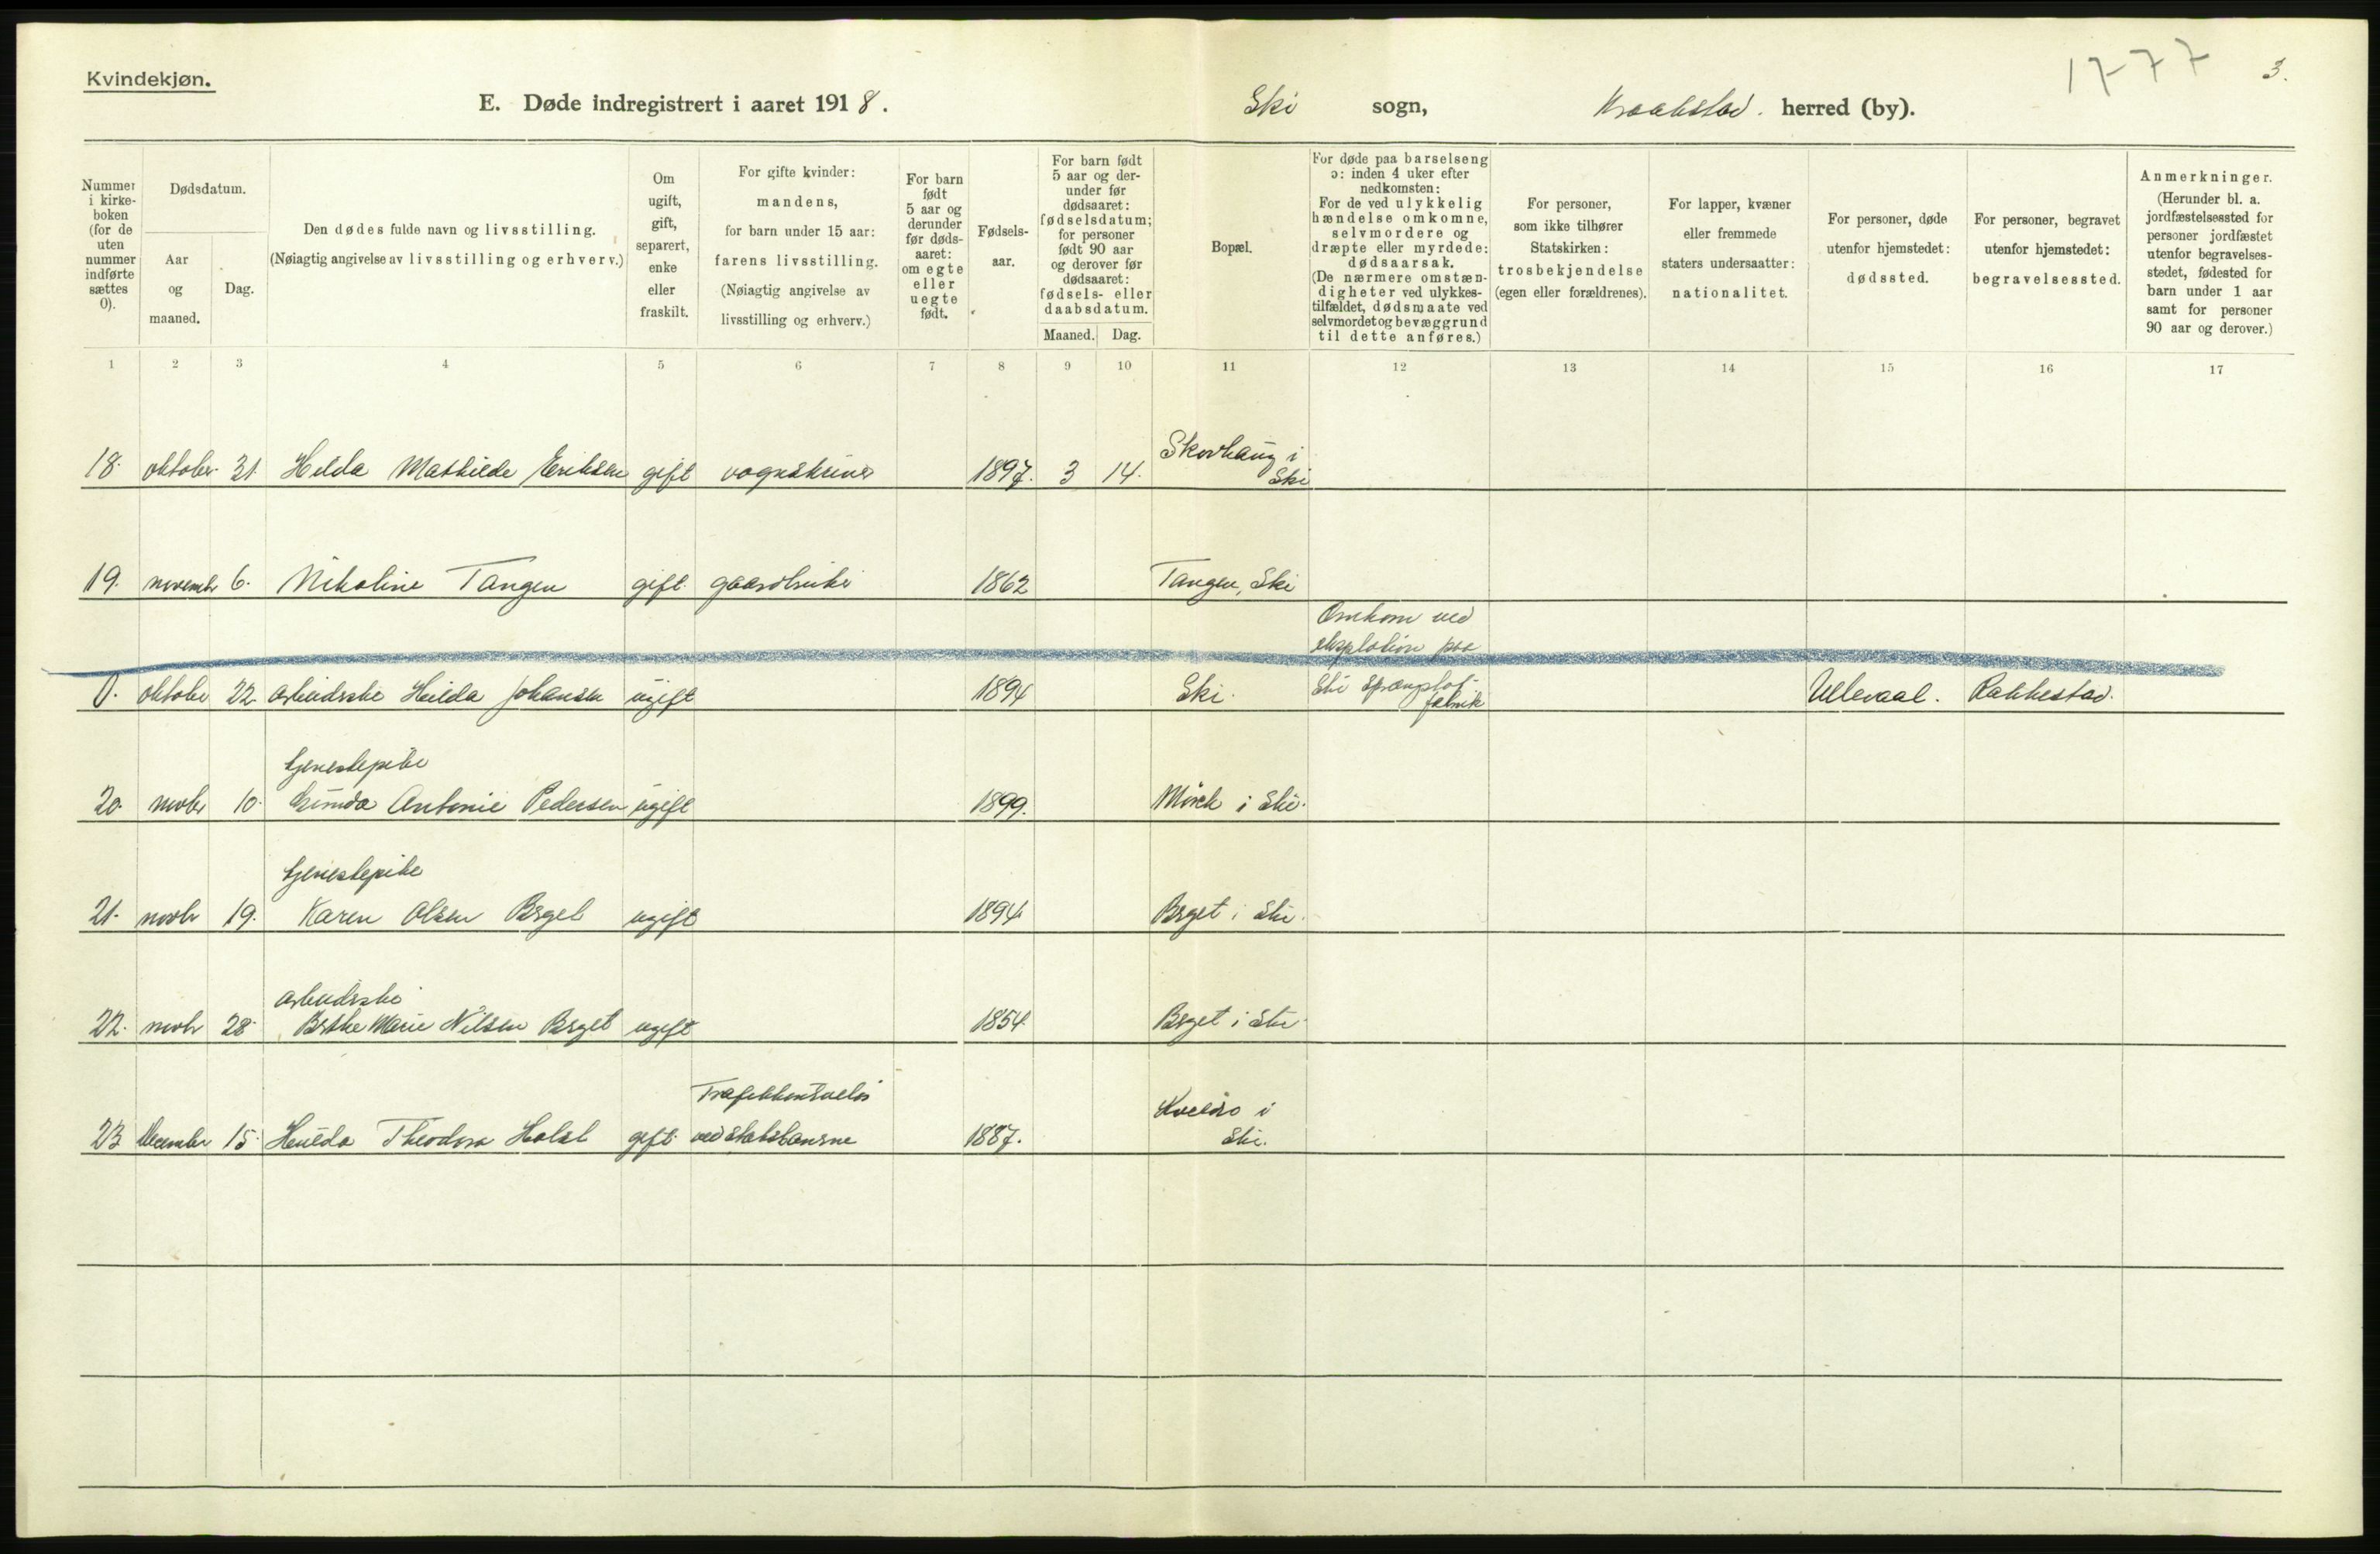 Kvindekjøn.
1777
3.
E. Døde indregistrert i aaret 1918.
Ski sogn, Kraakstad. herred (by).
Nummer i kirkeboken (for de uten nummer indførte sættes 0).
Dødsdatum.
Aar og maaned.
Dag.
Den dødes fulde navn og livsstilling.
(Nøiagtig angivelse av livsstilling og erhverv.)
Om ugift, gift, separert, enke eller fraskilt.
For gifte kvinder:
mandens,
for barn under 15 aar:
farens livsstilling.
(Nøiagtig angivelse av
livsstilling og erhverv.)
For barn født 5 aar og derunder før dødsaaret: om egte eller uegte født.
Fødselsaar.
For barn født
5 aar og derunder før
dødsaaret:
fødselsdatum;
for personer
født 90 aar
og derover før
dødsaaret:
fødsels- eller
daabsdatum.
Maaned.
Dag.
Bopæl.
For døde paa barselseng
ɔ: inden 4 uker efter
nedkomsten:
For de ved ulykkelig
hændelse omkomne,
selvmordere og
dræpte eller myrdede:
dødsaarsak.
(De nærmere omstændigheter ved ulykkestilfældet, dødsmaate ved
selvmordet og bevæggrund
til dette anføres.)
For personer,
som ikke tilhører
Statskirken:
trosbekjendelse
(egen eller forældrenes).
For lapper, kvæner
eller fremmede
staters undersaatter:
nationalitet.
For personer, døde
utenfor hjemstedet:
dødssted.
For personer, begravet
utenfor hjemstedet:
begravelsessted.
Anmerkninger.
(Herunder bl. a.
jordfæstelsessted for
personer jordfæstet
utenfor begravelsesstedet, fødested for
barn under 1 aar
samt for personer
90 aar og derover.)
1 2 3 4 5 6 7 8 9 10 11 12 13 14 15 16 17
18. oktober 31. Hilda Mathilde Eriksen gift vognskriver 1897. 3 14. Skovhaug i Ski
19. novembr 6. Nikoline Tangen gift. gaardbruker 1862 Tangen, Ski
0. oktober 22 arbeiderske Hilda Johansen ugift 1894 Ski. Omkom ved eksplotion paa Ski sprængstof-fabrik Ullevaal. Rakkestad.
20. novbr 10. tjenestepike Antonie Pedersen ugift 1899. Mörk i Ski.
21. novbr 19. tjenestepike Karen Olsen Berget ugift 1894 Berget i Ski.
22. novbr 28. arbeiderske Berthe Marie Nilsen Berget ugift 1854 Berget i Ski.
23 december 15. Theodora Holst gift. ved statsbanerne 1887. i Ski.